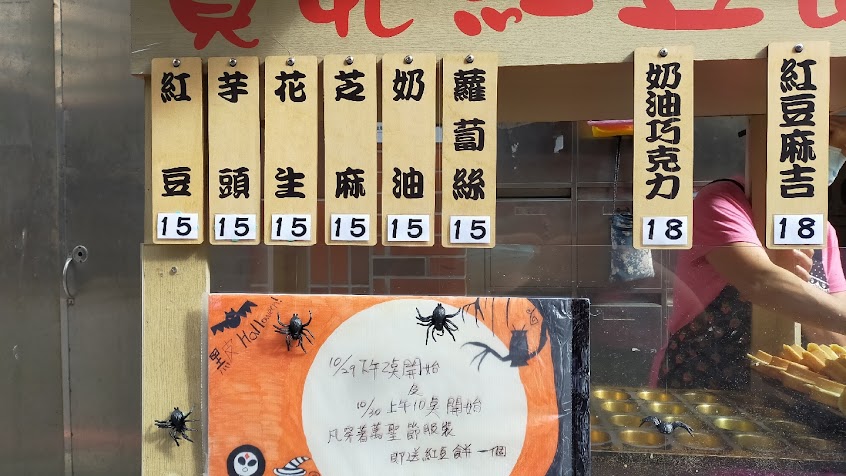 紅豆
15
芋頭
15
花生
15
芝麻
15
奶油
15
蘿蔔絲
15
奶油巧克力
18
紅豆麻吉
18
Halloween!
10/29下午2點開始
及
10/30上午10點開始
凡穿著萬聖節服裝
即送紅豆餅一個